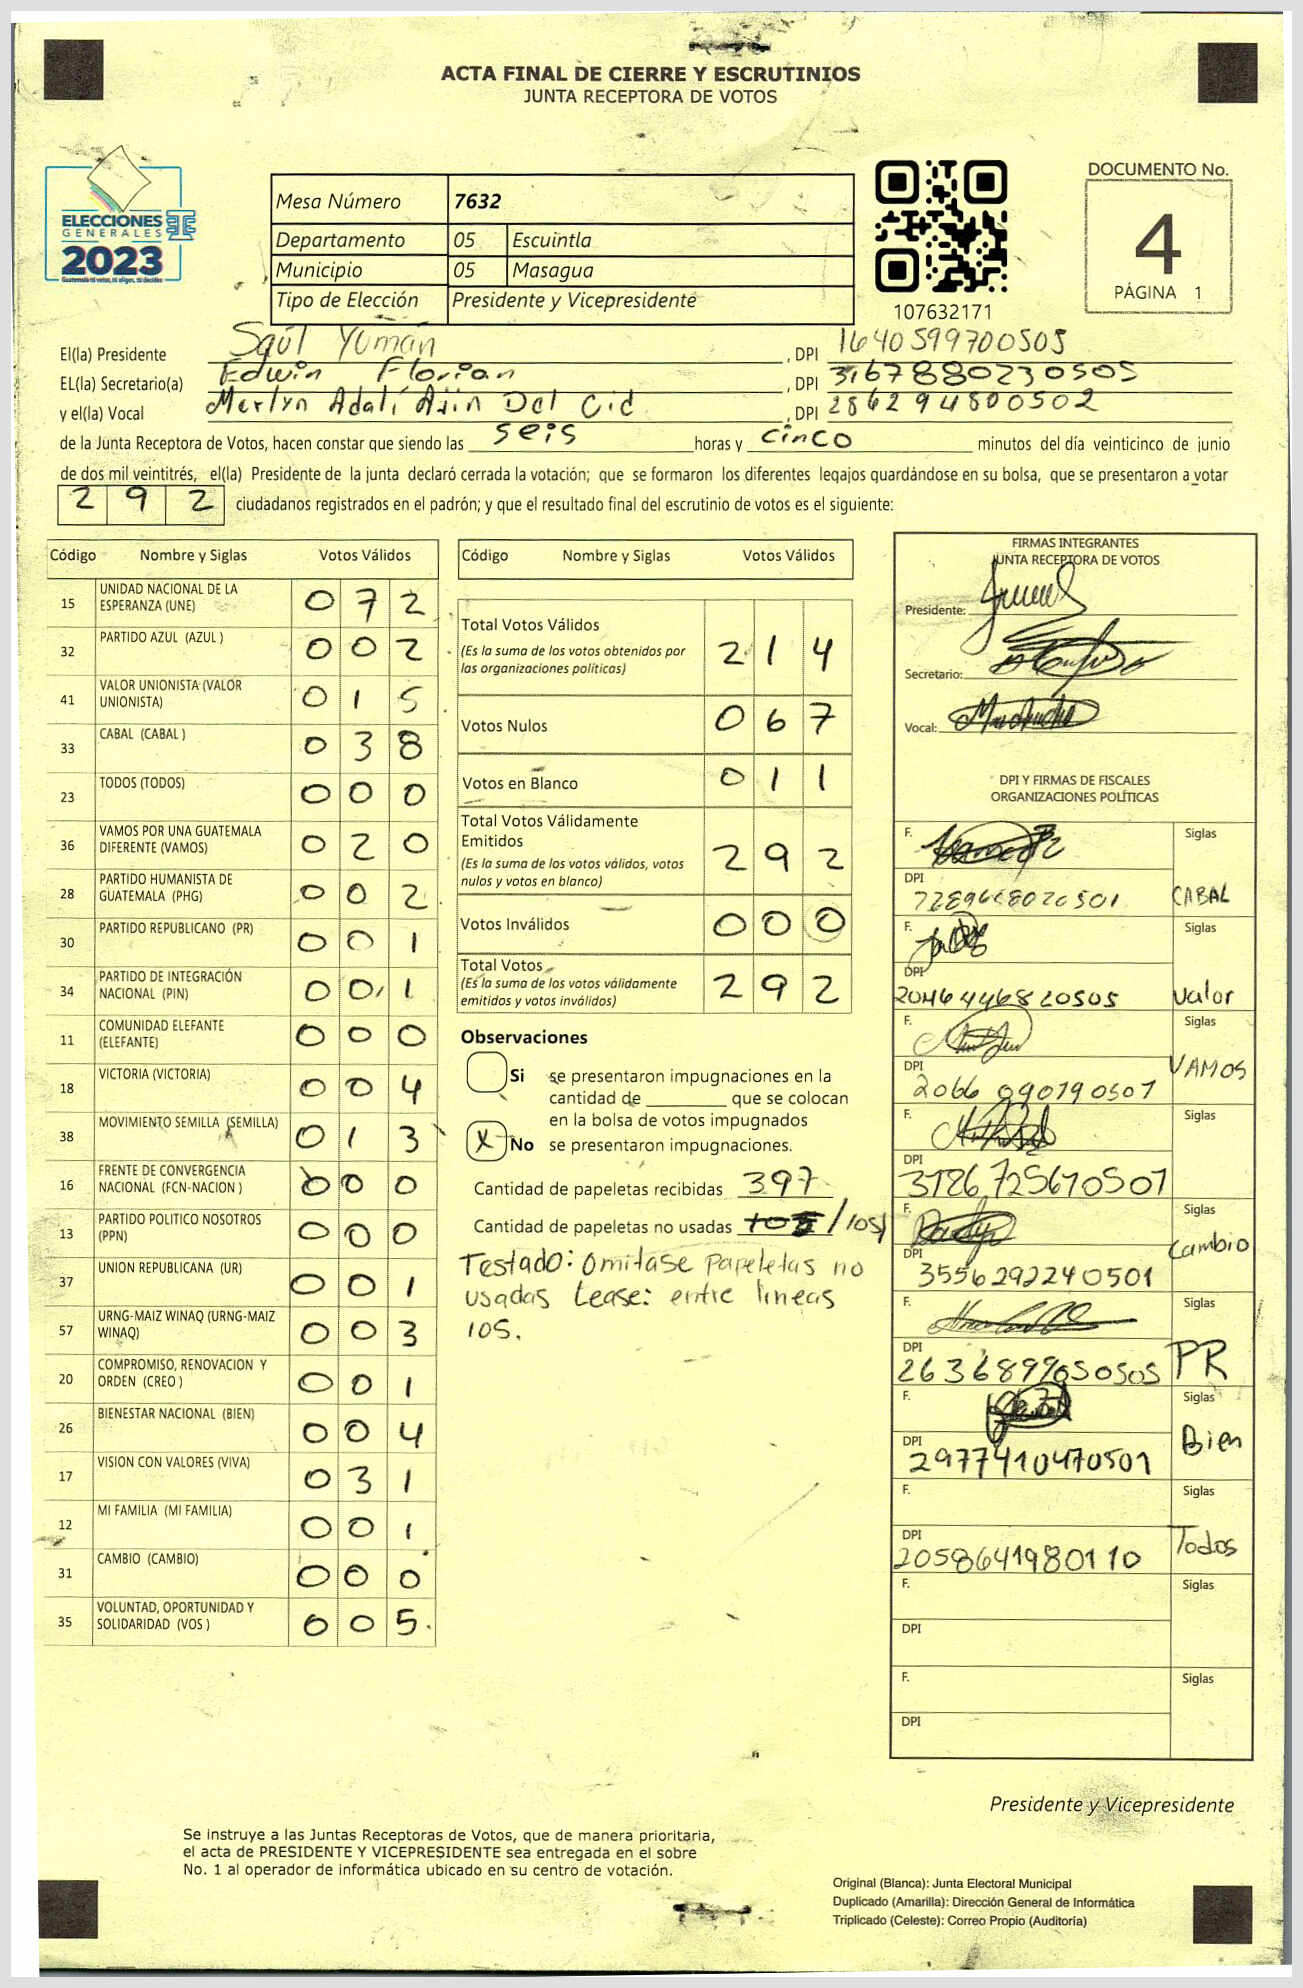 ACTA FINAL DE CIERRE Y ESCRUTINIOS
JUNTA RECEPTORA DE VOTOS
ELECCIONES
GENERALES
2023
Guatemala tú votas, tú eliges, tú decides
Mesa Número 7632
Departamento 05 Escuintla
Municipio 05 Masagua
Tipo de Elección Presidente y Vicepresidente
107632171
DOCUMENTO No.
4
PÁGINA 1
El(la) Presidente Saúl Yumán , DPI 1640599700505
EL(la) Secretario(a) Edwin Florian , DPI 3167880230505
y el(la) Vocal Merlyn Adalí Ajin Del Cid , DPI 2862948800502
de la Junta Receptora de Votos, hacen constar que siendo las seis horas y cinco minutos del día veinticinco de junio
de dos mil veintitrés, el(la) Presidente de la junta declaró cerrada la votación; que se formaron los diferentes legajos quardándose en su bolsa, que se presentaron a votar
292 ciudadanos registrados en el padrón; y que el resultado final del escrutinio de votos es el siguiente:
Código Nombre y Siglas Votos Válidos
15 UNIDAD NACIONAL DE LA ESPERANZA (UNE) 072
32 PARTIDO AZUL (AZUL ) 002
41 VALOR UNIONISTA (VALOR UNIONISTA) 015
33 CABAL (CABAL ) 038
23 TODOS (TODOS) 000
36 VAMOS POR UNA GUATEMALA DIFERENTE (VAMOS) 020
28 PARTIDO HUMANISTA DE GUATEMALA (PHG) 002
30 PARTIDO REPUBLICANO (PR) 001
34 PARTIDO DE INTEGRACIÓN NACIONAL (PIN) 001
11 COMUNIDAD ELEFANTE (ELEFANTE) 000
18 VICTORIA (VICTORIA) 004
38 MOVIMIENTO SEMILLA (SEMILLA) 013
16 FRENTE DE CONVERGENCIA NACIONAL (FCN-NACION ) 000
13 PARTIDO POLITICO NOSOTROS (PPN) 000
37 UNION REPUBLICANA (UR) 001
57 URNG-MAIZ WINAQ (URNG-MAIZ WINAQ) 003
20 COMPROMISO, RENOVACION Y ORDEN (CREO ) 001
26 BIENESTAR NACIONAL (BIEN) 004
17 VISION CON VALORES (VIVA) 031
12 MI FAMILIA (MI FAMILIA) 001
31 CAMBIO (CAMBIO) 000
35 VOLUNTAD, OPORTUNIDAD Y SOLIDARIDAD (VOS ) 005
Código Nombre y Siglas Votos Válidos
Total Votos Válidos 214
(Es la suma de los votos obtenidos por
las organizaciones políticas)
Votos Nulos 067
Votos en Blanco 011
Total Votos Válidamente
Emitidos 292
(Es la suma de los votos válidos, votos
nulos y votos en blanco)
Votos Inválidos 000
Total Votos 292
(Es la suma de los votos válidamente
emitidos y votos inválidos)
Observaciones
Si se presentaron impugnaciones en la
cantidad de ________ que se colocan
en la bolsa de votos impugnados
X No se presentaron impugnaciones.
Cantidad de papeletas recibidas 397
Cantidad de papeletas no usadas 105 /105/
Testado: Omitase papeletas no
usadas Lease: entre lineas
105.
FIRMAS INTEGRANTES
JUNTA RECEPTORA DE VOTOS
Presidente:
Secretario:
Vocal:
DPI Y FIRMAS DE FISCALES
ORGANIZACIONES POLÍTICAS
F. Siglas
DPI CABAL
F. Siglas
DPI 2046446820505 Valor
F. Siglas
DPI 2066090790507 VAMOS
F. Siglas
DPI 3186725670507
F. Siglas
DPI 3556292240501 Cambio
F. Siglas
DPI PR
F. Siglas
DPI 2977410470501 Bien
F. Siglas
DPI 2058641980110 Todos
F. Siglas
DPI
F. Siglas
DPI
Presidente y Vicepresidente
Se instruye a las Juntas Receptoras de Votos, que de manera prioritaria,
el acta de PRESIDENTE Y VICEPRESIDENTE sea entregada en el sobre
No. 1 al operador de informática ubicado en su centro de votación.
Original (Blanca): Junta Electoral Municipal
Duplicado (Amarilla): Dirección General de Informática
Triplicado (Celeste): Correo Propio (Auditoría)